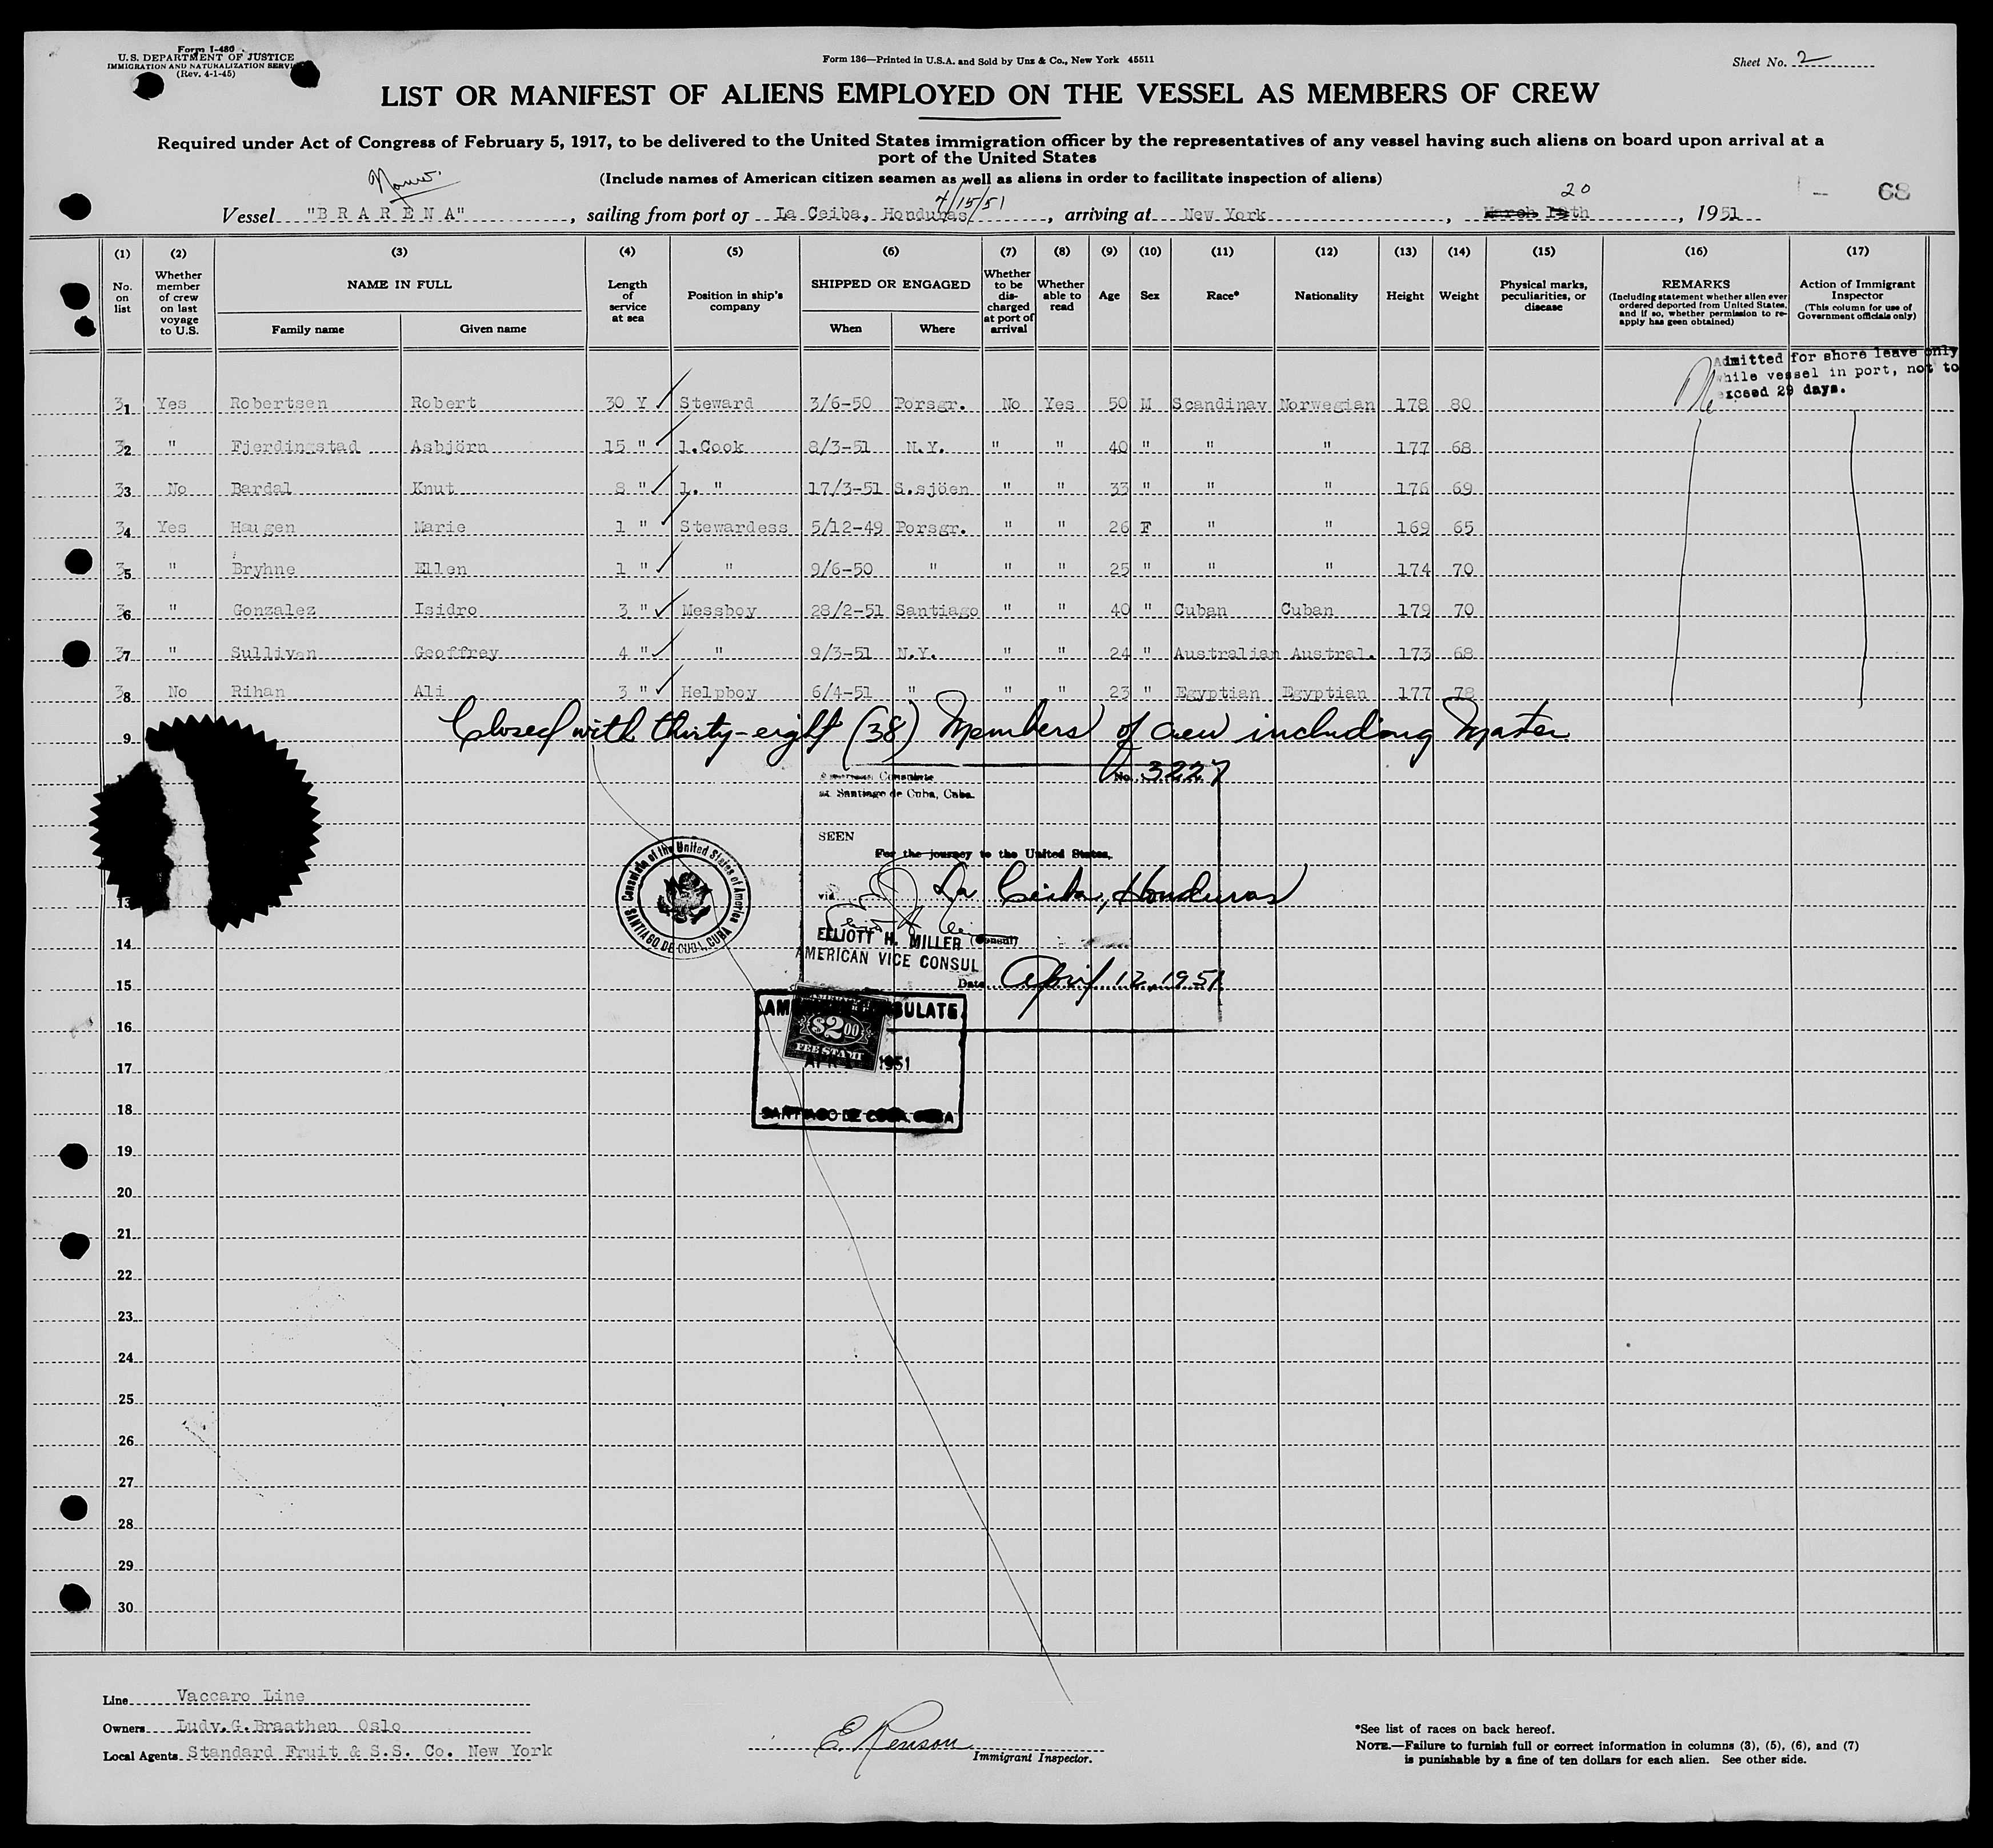 Form I-480
U.S. DEPARTMENT OF JUSTICE
IMMIGRATION AND NATURALIZATION SERVI
(Rev. 4-1-45)
Form 136—Printed in U.S.A. and Sold by Unz & Co., New York 45511
Sheet No. 2
LIST OR MANIFEST OF ALIENS EMPLOYED ON THE VESSEL AS MEMBERS OF CREW
Required under Act of Congress of February 5, 1917, to be delivered to the United States immigration officer by the representatives of any vessel having such aliens on board upon arrival at a
port of the United States
(Include names of American citizen seamen as well as aliens in order to facilitate inspection of aliens)
4/15/51
20
68
Vessel "BRARENA", sailing from port of La Ceiba, Honduras, arriving at New York, March 18th, 1951
(1) (2) (3) (4) (5) (6) (7) (8) (9) (10) (11) (12) (13) (14) (15) (16) (17)
No. on list
Whether member of crew on last voyage to U.S.
NAME IN FULL
Family name
Given name
Length of service at sea
Position in ship's company
SHIPPED OR ENGAGED
When
Where
Whether to be dis-charged at port of arrival
Whether able to read
Age
Sex
Race*
Nationality
Height
Weight
Physical marks, peculiarities, or disease
REMARKS
(Including statement whether alien ever ordered deported from United States, and if so, whether permission to re-apply has geen obtained)
Action of Immigrant Inspector
(This column for use of Government officials only)
Admitted for shore leave only
while vessel in port, not to
exceed 29 days.
31 Yes Robertsen Robert 30 Y Steward 3/6-50 Porsgr. No Yes 50 M Scandinav Norwegian 178 80
32 " Fjerdingstad Asbjörn 15 " 1.Cook 8/3-51 N.Y. " " 40 " " " 177 68
33 No Bardal Knut 8 " 1. " 17/3-51 S.sjöen " " 33 " " " 176 69
34 Yes Haugen Marie 1 " Stewardess 5/12-49 Porsgr. " " 26 F " " 169 65
35 " Bryhne Ellen 1 " " 9/6-50 " " " 25 " " " 174 70
36 " Gonzalez Isidro 3 " Messboy 28/2-51 Santiago " " 40 " Cuban Cuban 179 70
37 " Sullivan Geoffrey 4 " " 9/3-51 N.Y. " " 24 " Australian Austral. 173 68
38 No Rihan Ali 3 " Helpboy 6/4-51 " " " 23 " Egyptian Egyptian 177 78
Closed with thirty-eight (38) Members of crew including Master
9
American Consulate
at Santiago de Cuba, Cuba.
No. 3227
SEEN
For the journey to the United States,
via La Ceiba, Honduras
ELLIOTT H. MILLER (Consul)
AMERICAN VICE CONSUL
Date April 12, 1951
Consulate of the United States of America
SANTIAGO DE CUBA, CUBA
AM SULATE
$2.00
FEE STAMP
APR 1951
SANTIAGO DE CUBA, CUBA
13
14
15
16
17
18
19
20
21
22
23
24
25
26
27
28
29
30
Line Vaccaro Line
Owners Ludv.G.Braathen Oslo
Local Agents Standard Fruit & S.S. Co. New York
E. Renson
Immigrant Inspector.
*See list of races on back hereof.
NOTE.—Failure to furnish full or correct information in columns (3), (5), (6), and (7)
is punishable by a fine of ten dollars for each alien. See other side.